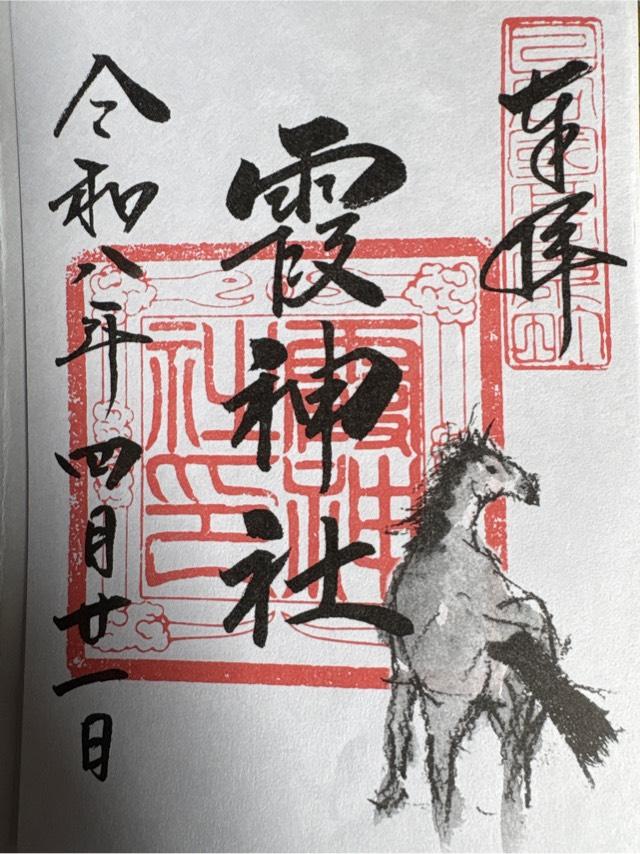 奉拝
霞神社
令和八年四月廿一日
霞神
社印